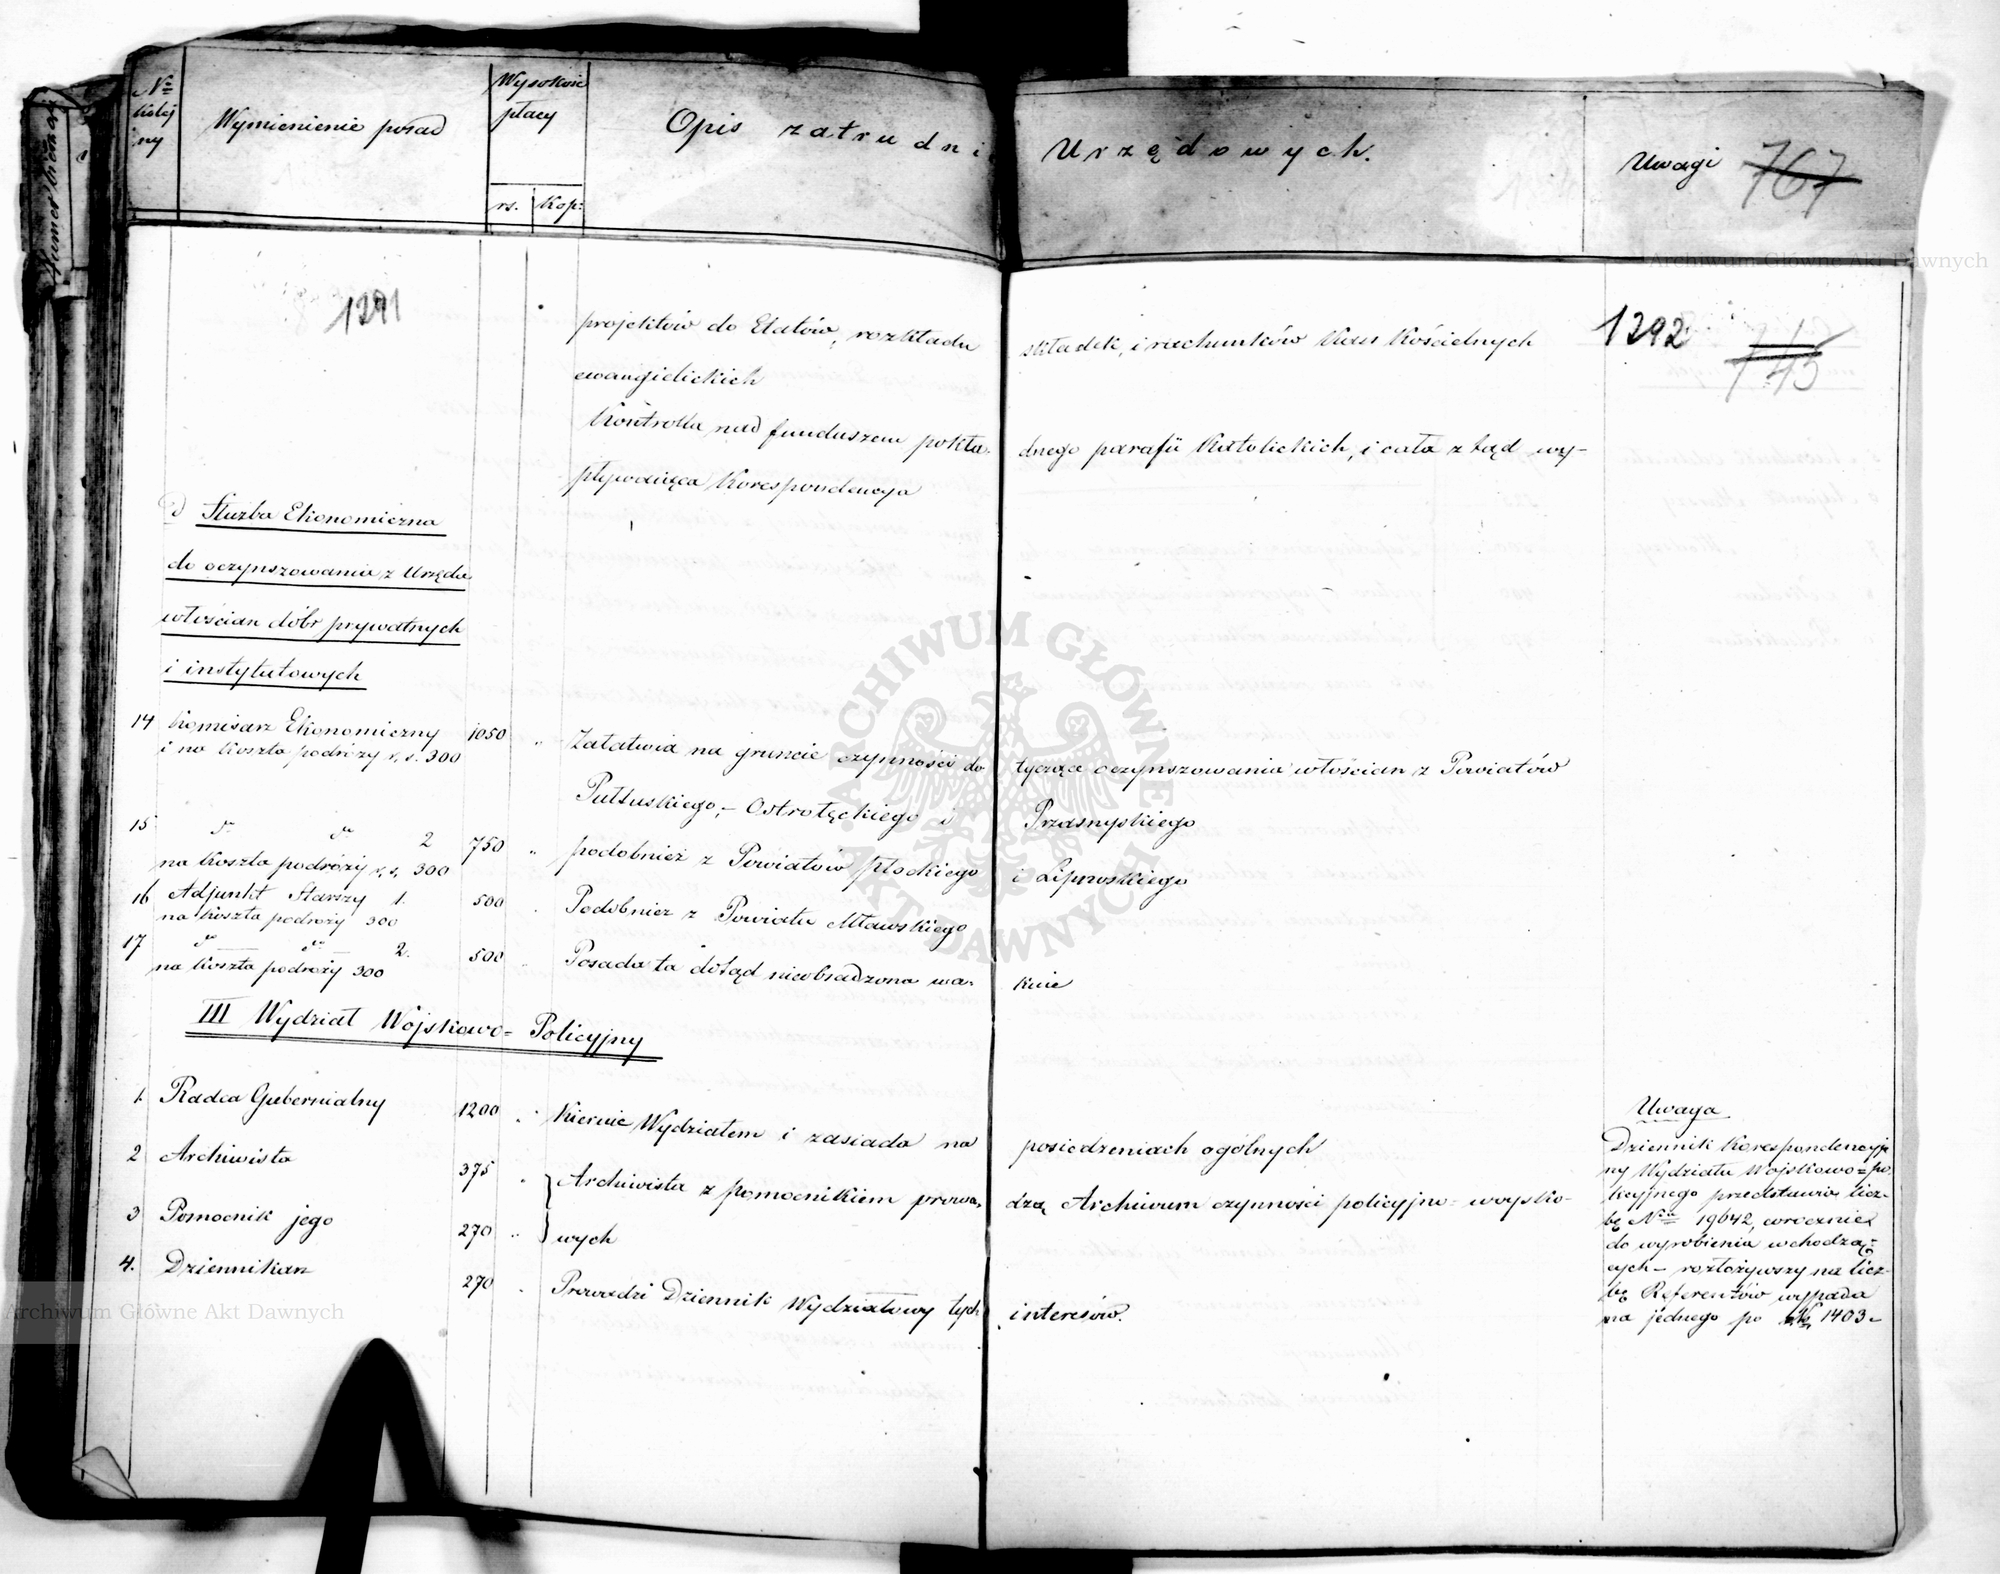 Nro kolejny
Wymienienie posad
Wysokość płacy
rs. Kop:
Opis zatrudnień Urzędowych.
Uwagi
767
1291
1292
745
projektów do Etatów, rozkładu składek, i rachunków Kass Kościelnych
ewangielickich
Kontrolla nad funduszem pokładnego parafii Katolickich, i cała z tąd wy-
pływaiąca Korespondencya
d) Służba Ekonomiczna
do oczynszowania z Urzędu
włościan dóbr prywatnych
i instytutowych
14 Komisarz Ekonomiczny 1050 „ Załatwia na gruncie czynności do tyczące oczynszowania włościan z Powiatów
i na koszta podróży r. s. 300
Pułtuskiego, – Ostrołęckiego i Przasnyskiego
15 do do 2 750 „ podobnież z Powiatów Płockiego i Lipnoskiego
na koszta podróży r. s. 300
16 Adjunkt Starszy 1. 500 „ Podobnież z Powiatu Mławskiego
na koszta podróży 300
17 do do 2. 500 „ Posada ta dotąd nieobsadzona wa- kuie
na koszta podróży 300
III Wydział Wojskowo= Policyjny
1. Radca Gubernialny 1200 „ Kieruie Wydziałem i zasiada na posiedzeniach ogólnych
2 Archiwista 375 „ Archiwista z pomocnikiem prowa- dzą Archiwum czynności policyjno- woysko-
3 Pomocnik jego 270 „ wych
4. Dziennikarz 270 „ Prowadzi Dziennik Wydziałowy tych interesów.
Uwaga
Dziennik Korespondencyj
ny Wydziału Wojskowo=po
licyjnego przedstawia licz-
bę Nrów 19642, corocznie
do wyrobienia wchodzą=
cych – rozłożywszy na licz-
bę Referentów wypada
na jednego po 1403.
Archiwum Główne Akt Dawnych
ARCHIWUM GŁÓWNE AKT DAWNYCH
Archiwum Główne Akt Dawnych